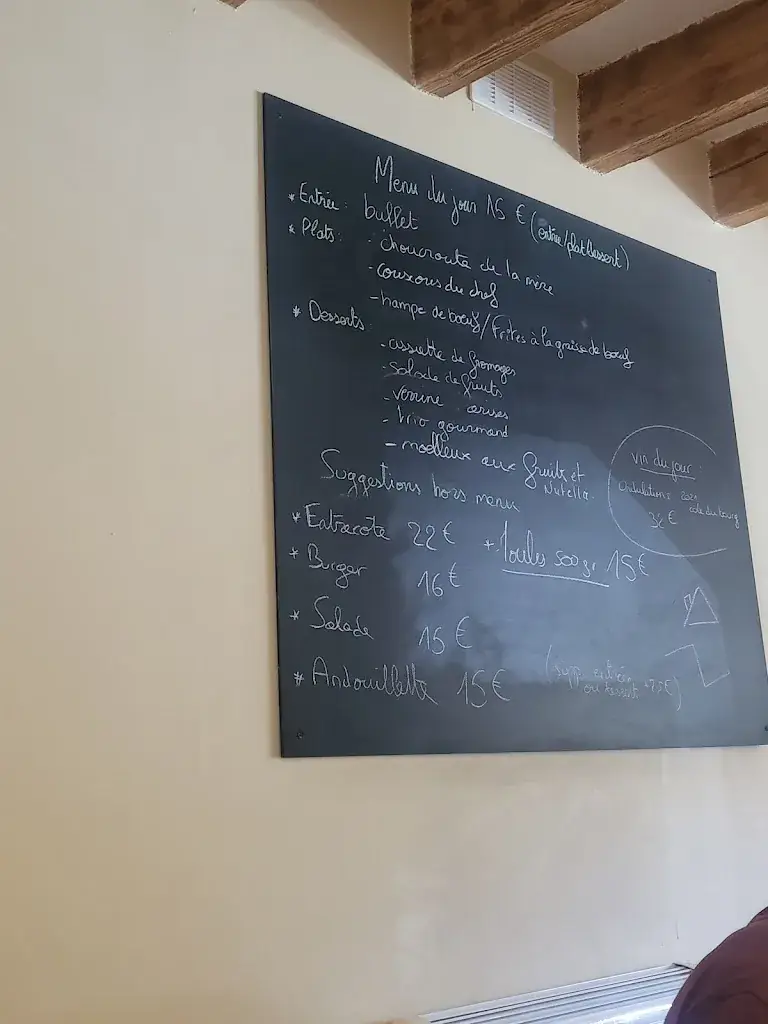 Menu du jour 15 € (entrée/plat/dessert)
* Entrée : buffet
* Plats : - choucroute de la mère
- couscous du chef
- hampe de bœuf / frites à la graisse de bœuf
* Desserts : - assiette de fromages
- salade de fruits
- verrine cerises
- trio gourmand
- moelleux aux fruits et
Nutella.
Suggestions hors menu
* Entrecote 22 €
* Burger 16 €
* Salade 15 €
* Andouillette 15 €
* Moules 500 gr 15 €
(supp. entrée
ou dessert
vin du jour :
Ondulations 2021
côte du bourg
32 €